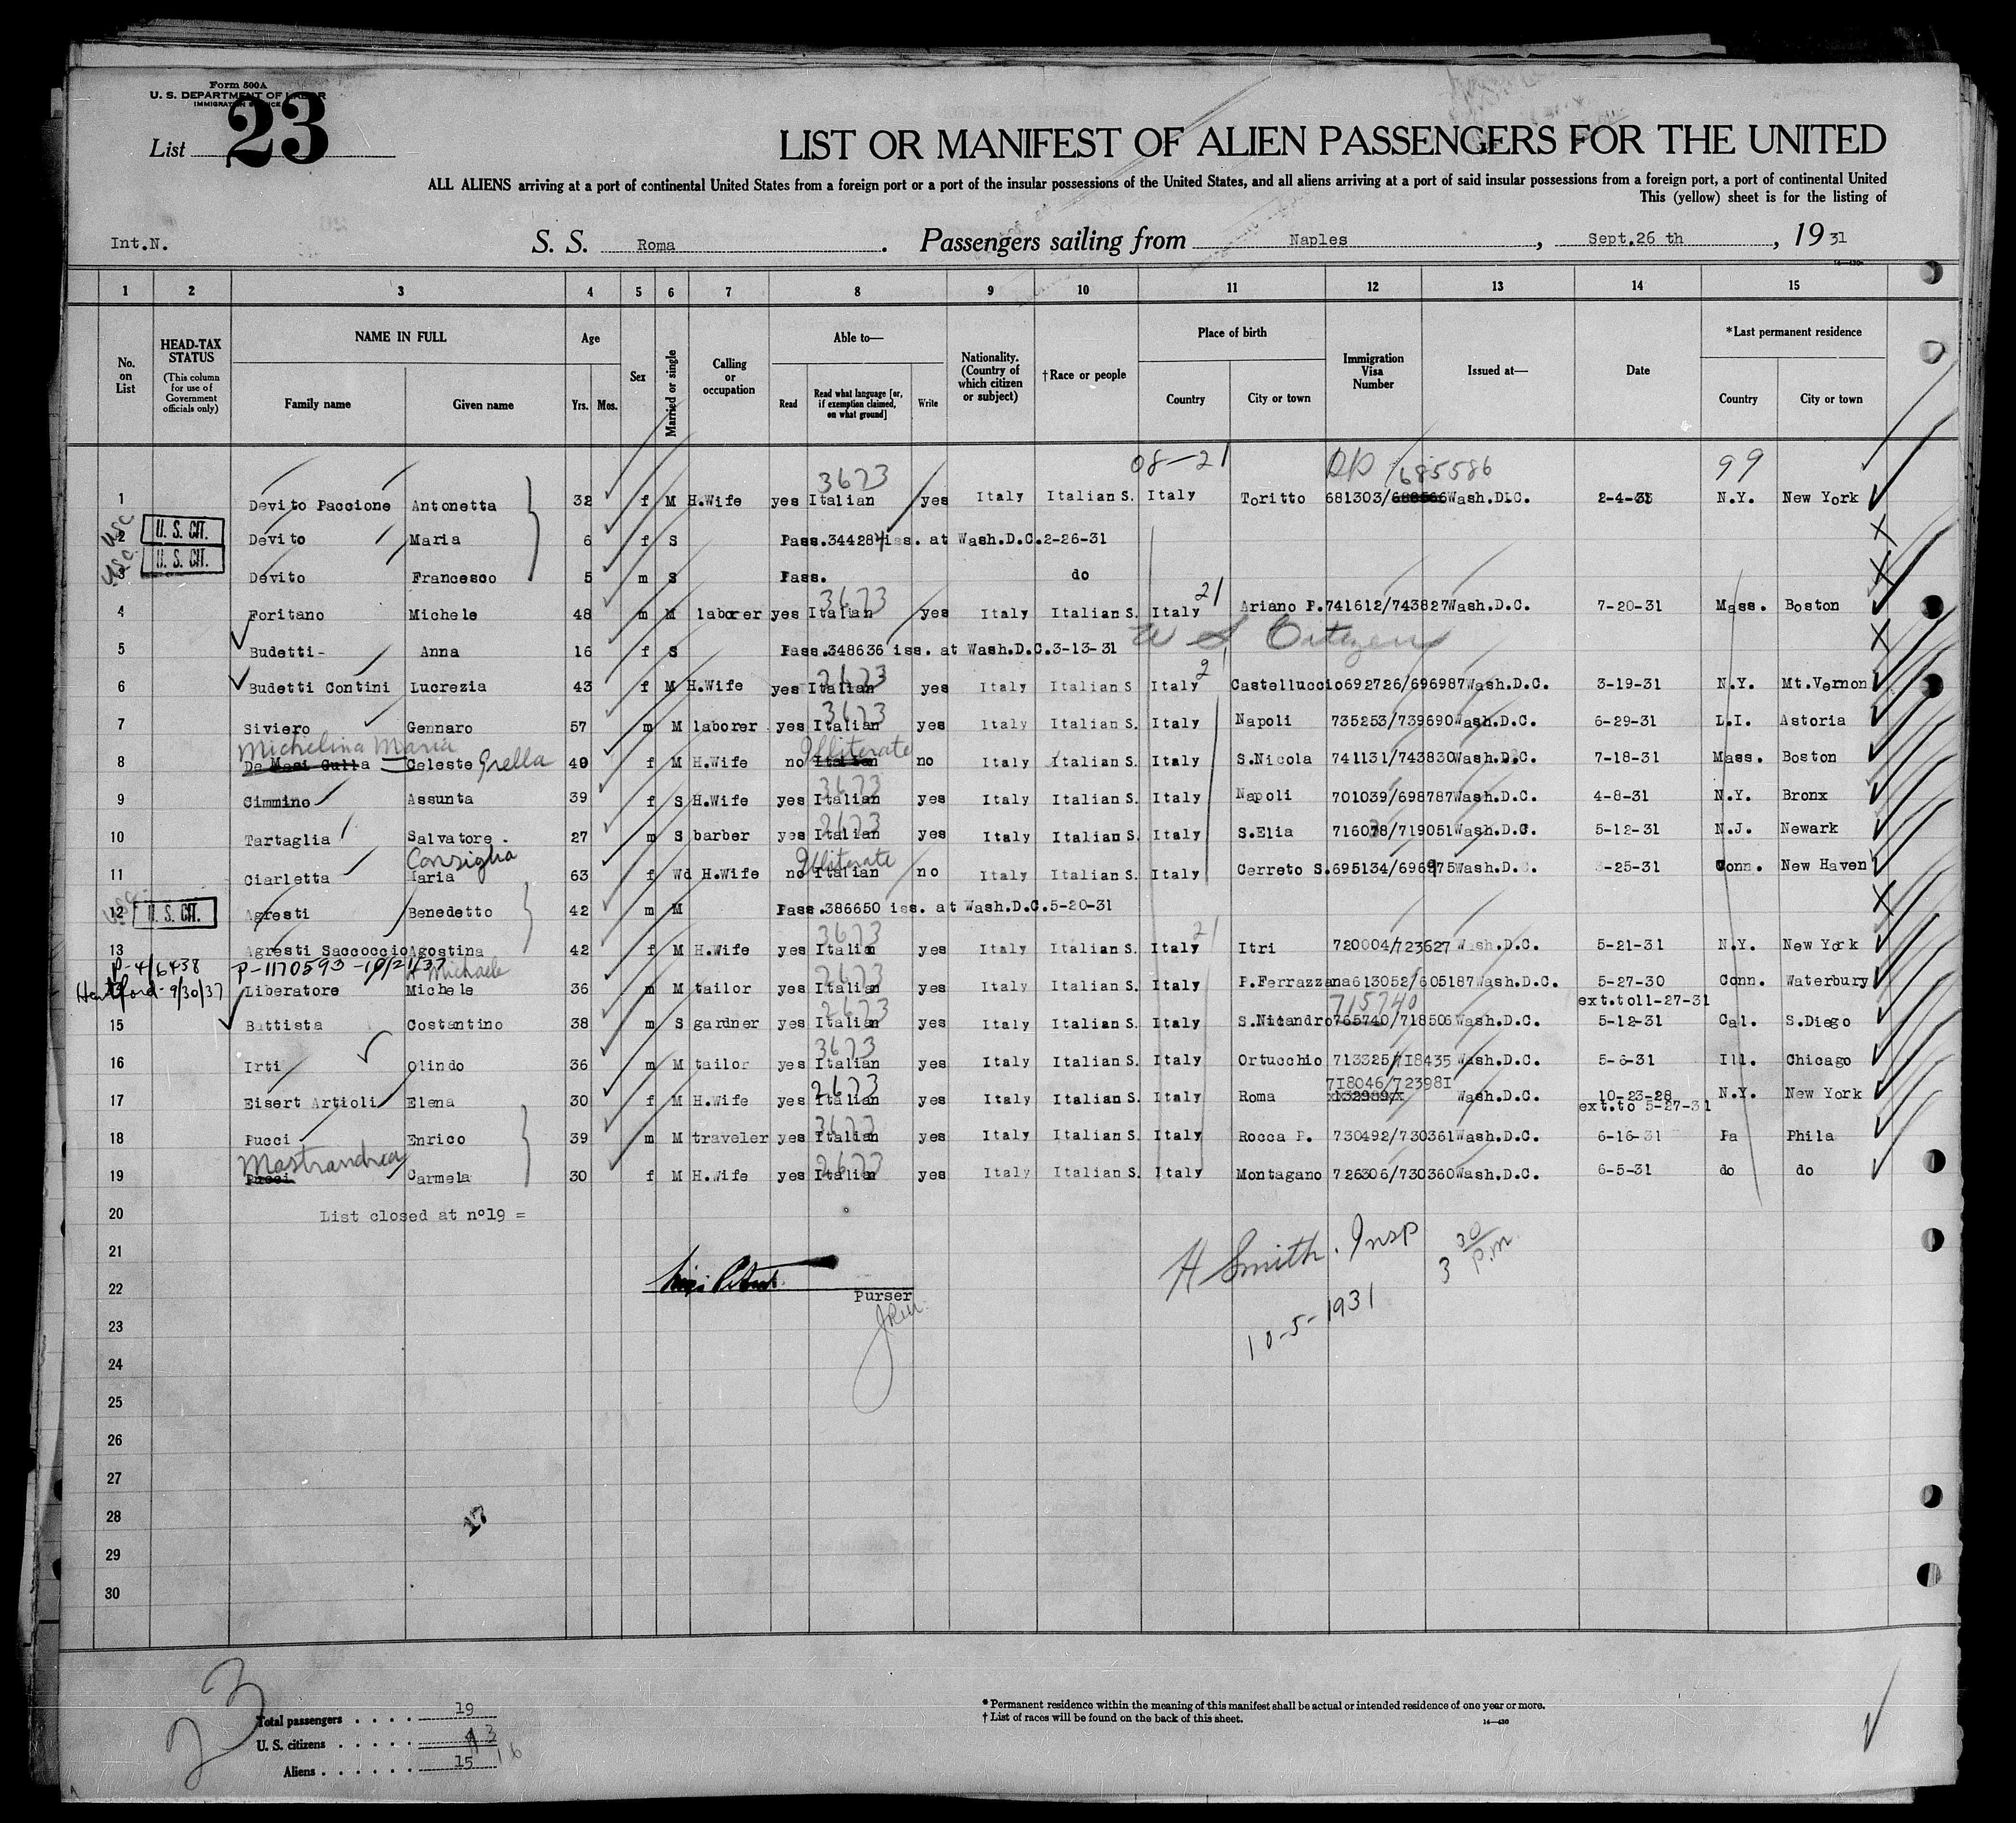 Form 500A
U. S. DEPARTMENT OF LABOR
IMMIGRATION SERVICE
List 23
LIST OR MANIFEST OF ALIEN PASSENGERS FOR THE UNITED
ALL ALIENS arriving at a port of continental United States from a foreign port or a port of the insular possessions of the United States, and all aliens arriving at a port of said insular possessions from a foreign port, a port of continental United
This (yellow) sheet is for the listing of
Int.N. S. S. Roma . Passengers sailing from Naples , Sept.26 th , 19 31
1 2 3 4 5 6 7 8 9 10 11 12 13 14 15
No. on List
HEAD-TAX STATUS
(This column for use of Government officials only)
NAME IN FULL
Family name Given name
Age
Yrs. Mos.
Sex
Married or single
Calling or occupation
Able to—
Read Read what language [or, if exemption claimed, on what ground] Write
Nationality. (Country of which citizen or subject)
†Race or people
Place of birth
Country City or town
Immigration Visa Number
Issued at—
Date
*Last permanent residence
Country City or town
3673 08-21 685586 99
1 Devito Paccione Antonetta 32 f M H.Wife yes Italian yes Italy Italian S. Italy Toritto 681303/ Wash.D.C. 2-4-31 N.Y. New York
USC 2 U. S. CIT. Devito Maria 6 f S Pass.344284 iss. at Wash.D.C.2-26-31
USC 3 U. S. CIT. Devito Francesco 5 m S Pass. do
3673 21
4 Foritano Michele 48 m M laborer yes Italian yes Italy Italian S. Italy Ariano P. 741612/743827 Wash.D.C. 7-20-31 Mass. Boston
5 Budetti- Anna 16 f S Pass.348636 iss. at Wash.D.C.3-13-31 U S Citizen
2673 2
6 Budetti Contini Lucrezia 43 f M H.Wife yes Italian yes Italy Italian S Italy Castelluccio 692726/696987 Wash.D.C. 3-19-31 N.Y. Mt.Vernon
3673
7 Siviero Gennaro 57 m M laborer yes Italian yes Italy Italian S. Italy Napoli 735253/739690 Wash.D.C. 6-29-31 L.I. Astoria
Michelina Maria Illiterate
8 De Masi Gulla Celeste Grella 49 f M H.Wife no Italian no Italy Italian S. Italy S.Nicola 741131/743830 Wash.D.C. 7-18-31 Mass. Boston
3673
9 Cimmino Assunta 39 f S H.Wife yes Italian yes Italy Italian S. Italy Napoli 701039/698787 Wash.D.C. 4-8-31 N.Y. Bronx
2673
10 Tartaglia Salvatore 27 m S barber yes Italian yes Italy Italian S. Italy S.Elia 716078/719051 Wash.D.C. 5-12-31 N.J. Newark
Consiglia Illiterate
11 Ciarletta Maria 63 f Wd H.Wife no Italian no Italy Italian S. Italy Cerreto S. 695134/696975 Wash.D.C. -25-31 Conn. New Haven
USC 12 U. S. CIT. Agresti Benedetto 42 m M Pass.386650 iss. at Wash.D.C.5-20-31
3673 21
13 Agresti Saccoccio Agostina 42 f M H.Wife yes Italian yes Italy Italian S. Italy Itri 720004/723627 Wash.D.C. 5-21-31 N.Y. New York
P-4/6438 P-1170593 -10/21/37 Michaele 2673
Hartford-9/30/37 Liberatore Michele 36 m M tailor yes Italian yes Italy Italian S. Italy P.Ferrazzana 613052/605187 Wash.D.C. 5-27-30 Conn. Waterbury
2673 715740 ext.to11-27-31
15 Battista Costantino 38 m S gardner yes Italian yes Italy Italian S. Italy S.Nicandro 765740/718506 Wash.D.C. 5-12-31 Cal. S.Diego
3673
16 Irti Olindo 36 m M tailor yes Italian yes Italy Italian S. Italy Ortucchio 713325/718435 Wash.D.C. 5-6-31 Ill. Chicago
2673 718046/723981
17 Eisert Artioli Elena 30 f M H.Wife yes Italian yes Italy Italian S. Italy Roma Wash.D.C. 10-23-28 N.Y. New York
3673 ext.to 5-27-31
18 Pucci Enrico 39 m M traveler yes Italian yes Italy Italian S. Italy Rocca P. 730492/730361 Wash.D.C. 6-16-31 Pa Phila
Mastrandrea 2673
19 Pucci Carmela 30 f M H.Wife yes Italian yes Italy Italian S. Italy Montagano 726306/730360 Wash.D.C. 6-5-31 do do
20 List closed at n°19 =
21 H Smith. Insp 3 30 P.M.
22 Purser
23 10-5-1931
24
25
26
27
28 17
29
30
23
Total passengers . . . . 19
U. S. citizens . . . . . 3
Aliens . . . . . . 15 16
* Permanent residence within the meaning of this manifest shall be actual or intended residence of one year or more.
† List of races will be found on the back of this sheet. 14—430